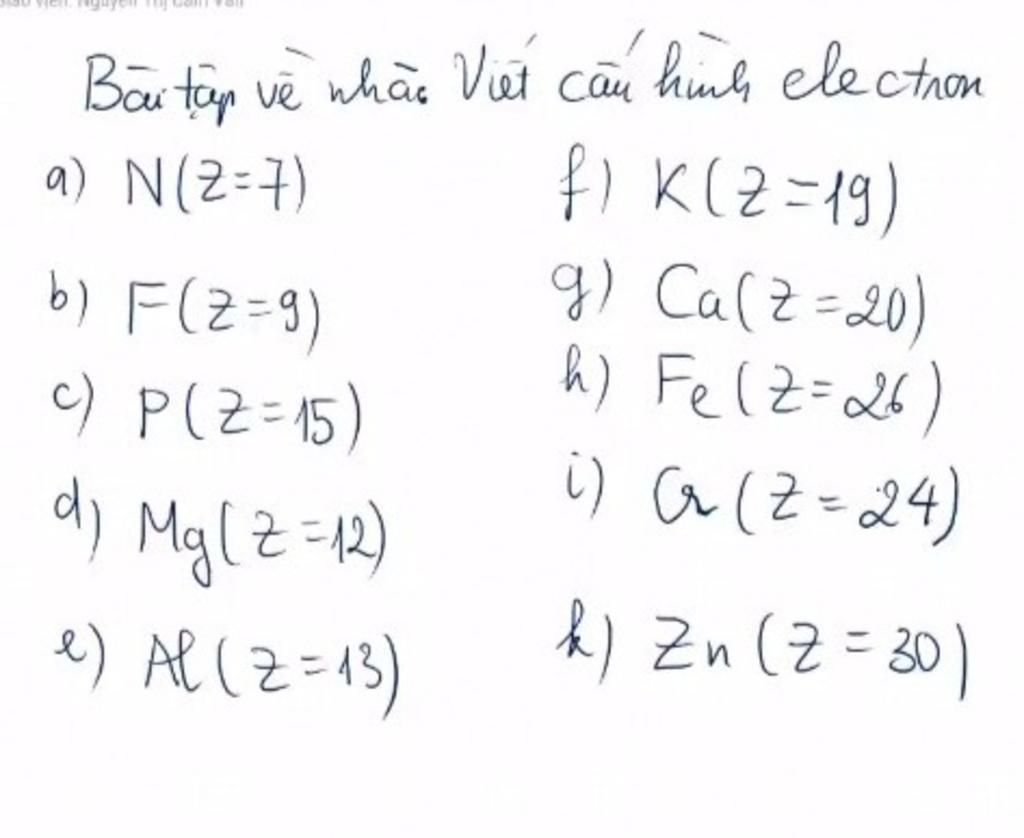 Giáo viên: Nguyễn Thị Cẩm Vân
Bài tập về nhà: Viết cấu hình electron
a) N(Z=7)
b) F(Z=9)
c) P(Z=15)
d) Mg(Z=12)
e) Al(Z=13)
f) K(Z=19)
g) Ca(Z=20)
h) Fe(Z=26)
i) Cr(Z=24)
k) Zn(Z=30)